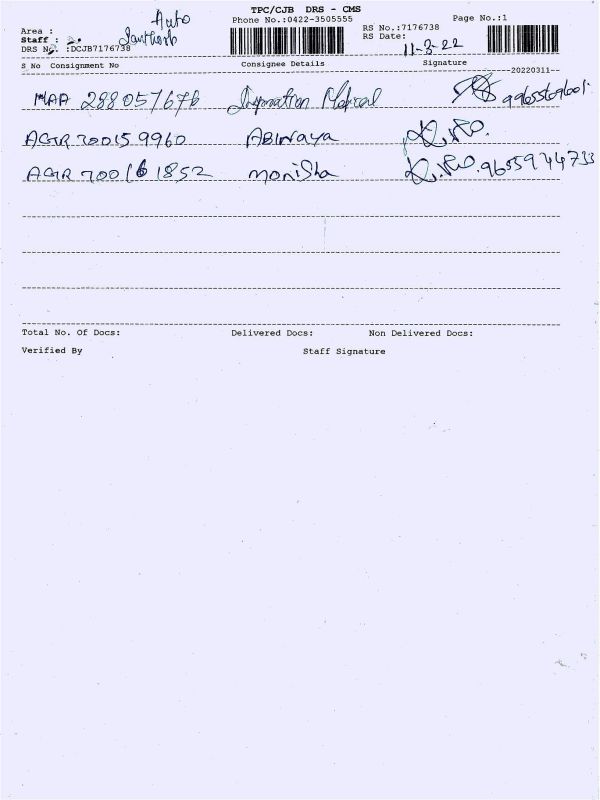 TPC/CJB DRS - CMS
Auto
Phone No.:0422-3505555
Page No.:1
RS No.:7176738
Area :
Staff : Santhosh
RS Date: 11-3-22
DRS No. :DCJB7176738
S No Consignment No Consignee Details Signature
--20220311--
MAA 288057676 Medical
AGTR 700159960 ABINAYA
AGTR 700161852 MoniSha 9655944733
Total No. Of Docs: Delivered Docs: Non Delivered Docs:
Verified By Staff Signature